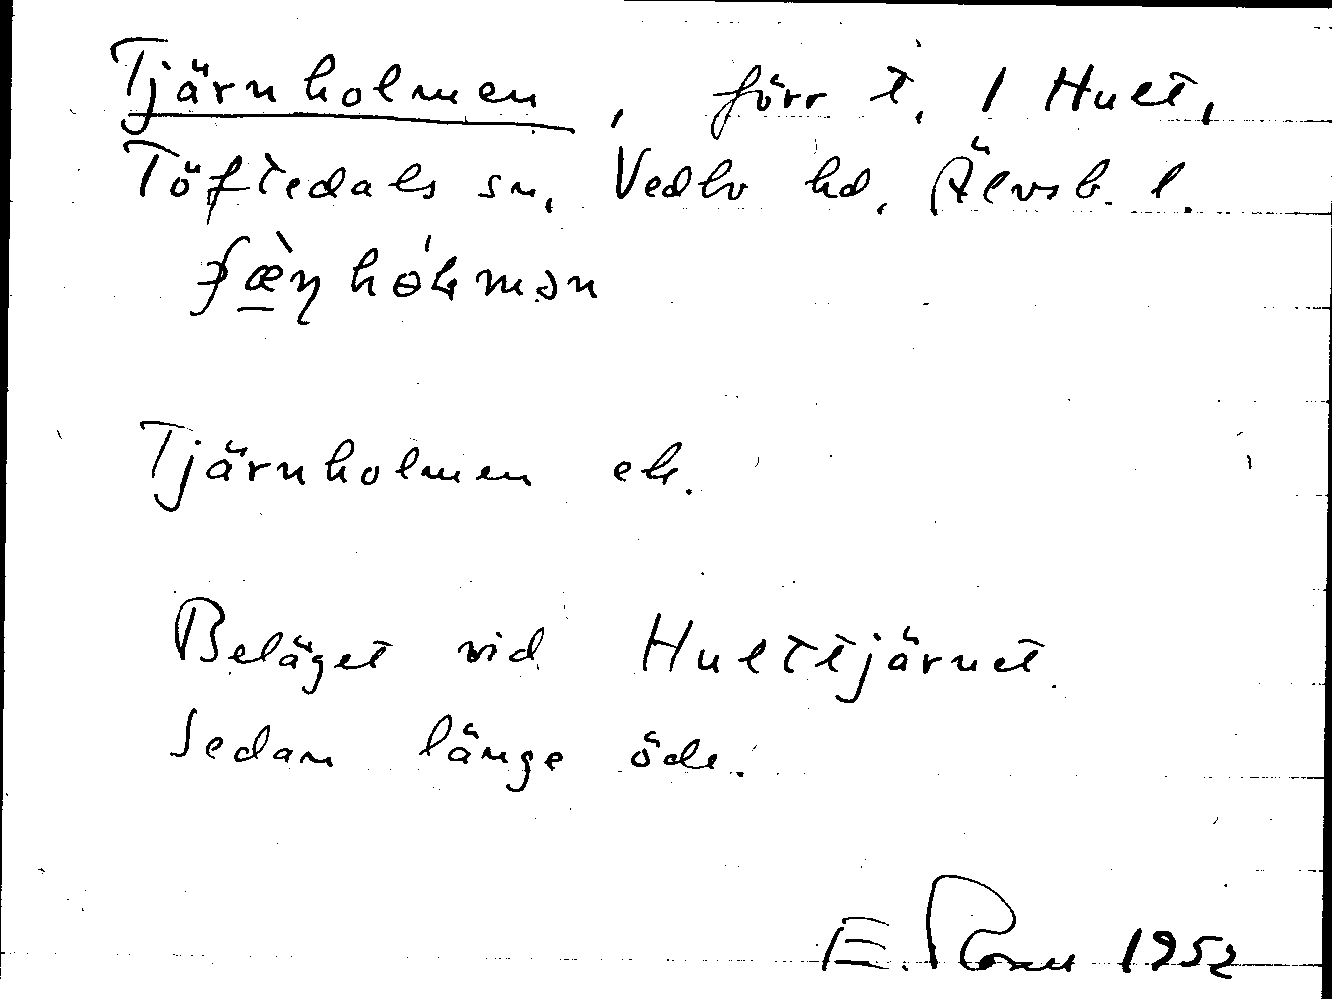 Tjärnholmen, förr t. 1 Hult,
Töftedals sn, Vedbo hd, Älvsb. l.
Tjärnholmen ek.
Beläget vid Hulttjärnet.
Sedan länge öde.
E. 1952